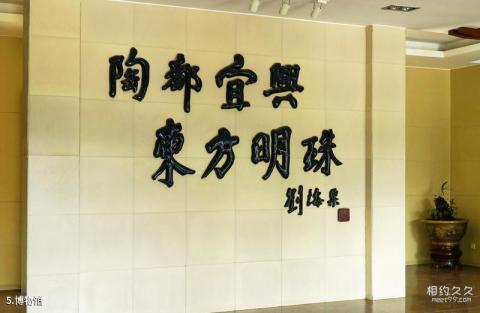 陶都宜興
東方明珠
劉海粟
相约久久
meet99.com
5.博物馆